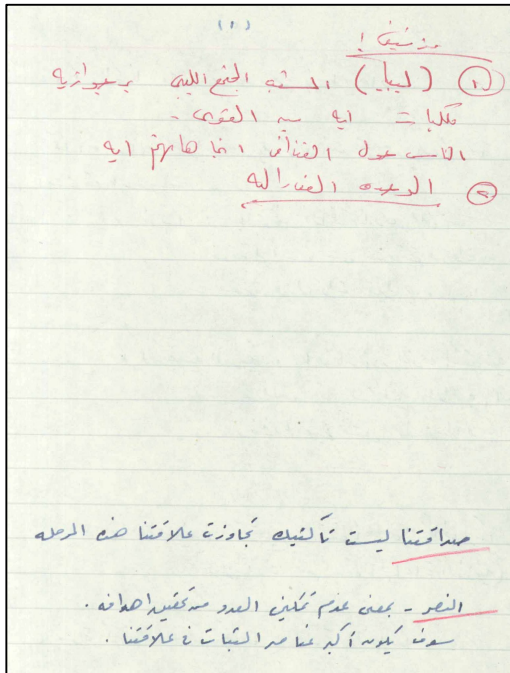 (١)
١ (ليبيا) الشعب المجتمع الليبى برجوازيه
ايه بين القوى -
الناس حول القذافى اتجاهاتهم ايه
٢ الوحده الفيدراليه
صداقتنا ليست تاكتيك تجاوزت علاقتنا هذه المرحله
النصر - بمعنى عدم تمكين العدو من تحقيق اهدافه .
سوف يكون أكبر عناصر الثبات فى علاقتنا .